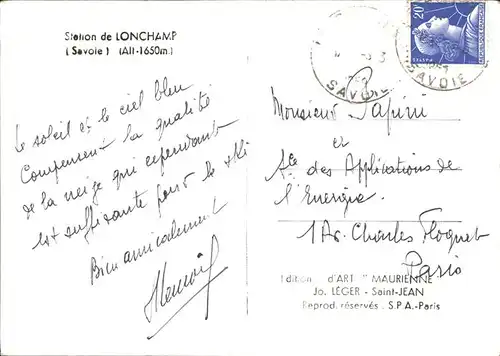 Station de LONCHAMP
(Savoie) (Alt-1650m.)
Le soleil et le ciel bleu
Compensent la qualité
de la neige qui cependant
est suffisante pour le ski
Bien amicalement
SAVOIE
20F
POSTES
SAVOIE
Monsieur Papini
et
Sté des Applications de
l'Energie
1 Av. Charles Floquet
Paris
Edition d'ART " MAURIENNE
Jo. LÉGER - Saint-JEAN
Reprod. réservés . S.P.A.-Paris